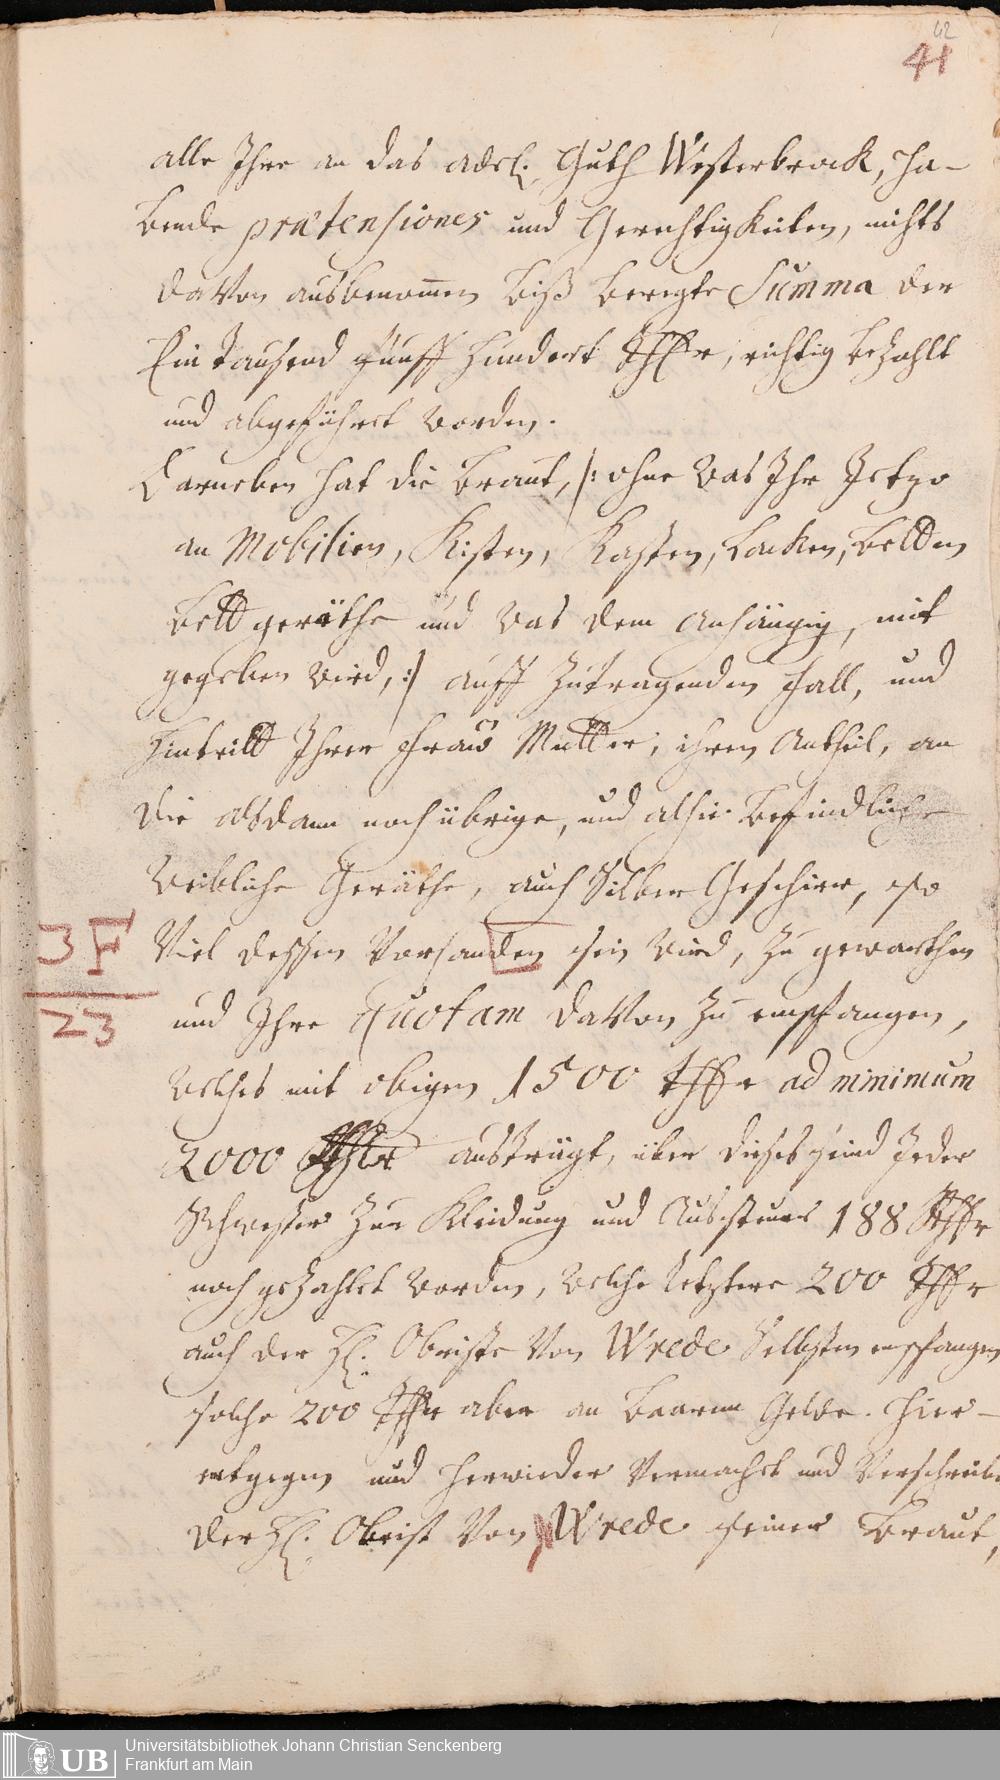 42
41
alle Ihre an das adel. Guth Westerbrack, ha-
bende prætensiones und Gerechtigkeiten, nichts
davon ausbenom̄en biß beregte Summa der
Ein Tausend fünff Hundert Thlr, richtig bezahlt
und abgeführet worden.
Darneben hat die Braut, /: ohne was Ihr Jetzo
an Mobilien, Kisten, Kasten, Lacken, Betten
Bettgeräthe und was dem anhängig, mit
gegeben wird, :/ auff zutragenden Fall, und
Hintritt Ihrer Frau Mutter, ihren Antheil, an
die alsdann noch übrige, und alhie befindliche
Weibliche Geräthe, auch Silber Geschirr, so
Viel dessen Vorhanden sein wird, zu gewarthen
3F
23
und Ihre Quotam davon zu empfangen,
welches mit obigen 1500 Thlr ad minimum
2000 Thlr austrägt, über dieses seind Jeder
Schwester zur Kleidung und Aussteuer 188 Thlr
noch gezahlet worden, welche letztere 200 Thlr
auch der H. Obriste Von Wrede Selbsten empfangen
solche 200 Thlr aber an baarem Gelde. Hier-
entgegen und herwieder Vermachet und Verschreibe
der H. Obrist Von Wrede seiner Braut,
UB Universitätsbibliothek Johann Christian Senckenberg
Frankfurt am Main